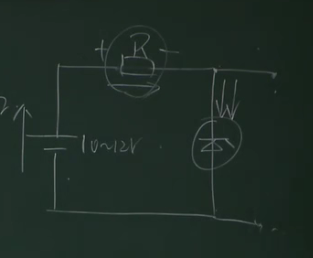 + R -
10~12V